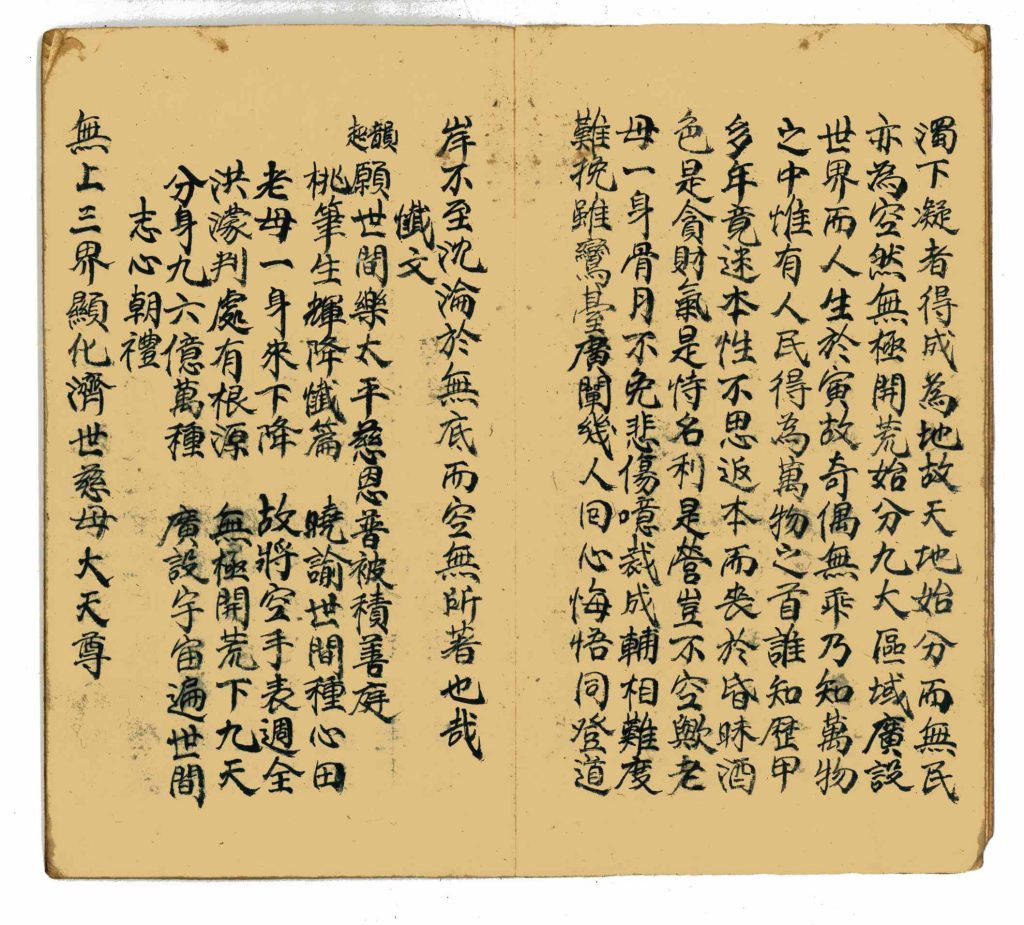 濁下凝者得成為地故天地始分而無民
亦為空然無極開荒始分九大區域廣設
世界而人生於寅故奇偶無乖乃知萬物
之中惟有人民得為萬物之首誰知歷甲
多年竟迷本性不思返本而喪於昏昧酒
色是貪財氣是恃名利是營豈不空歟老
母一身骨月不免悲傷噫裁成輔相難度
難挽雖鸞臺廣闡幾人囘心悔悟同登道
岸不至沈淪於無底而空無所著也哉
懺文
韻起
願世間樂太平慈恩普被積善庭
桃筆生輝降懺篇 曉諭世間種心田
老母一身來下降 故將空手表週全
洪濛判處有根源 無極開荒下九天
分身九六億萬種 廣設宇宙遍世間
志心朝禮
無上三界顯化濟世慈母大天尊